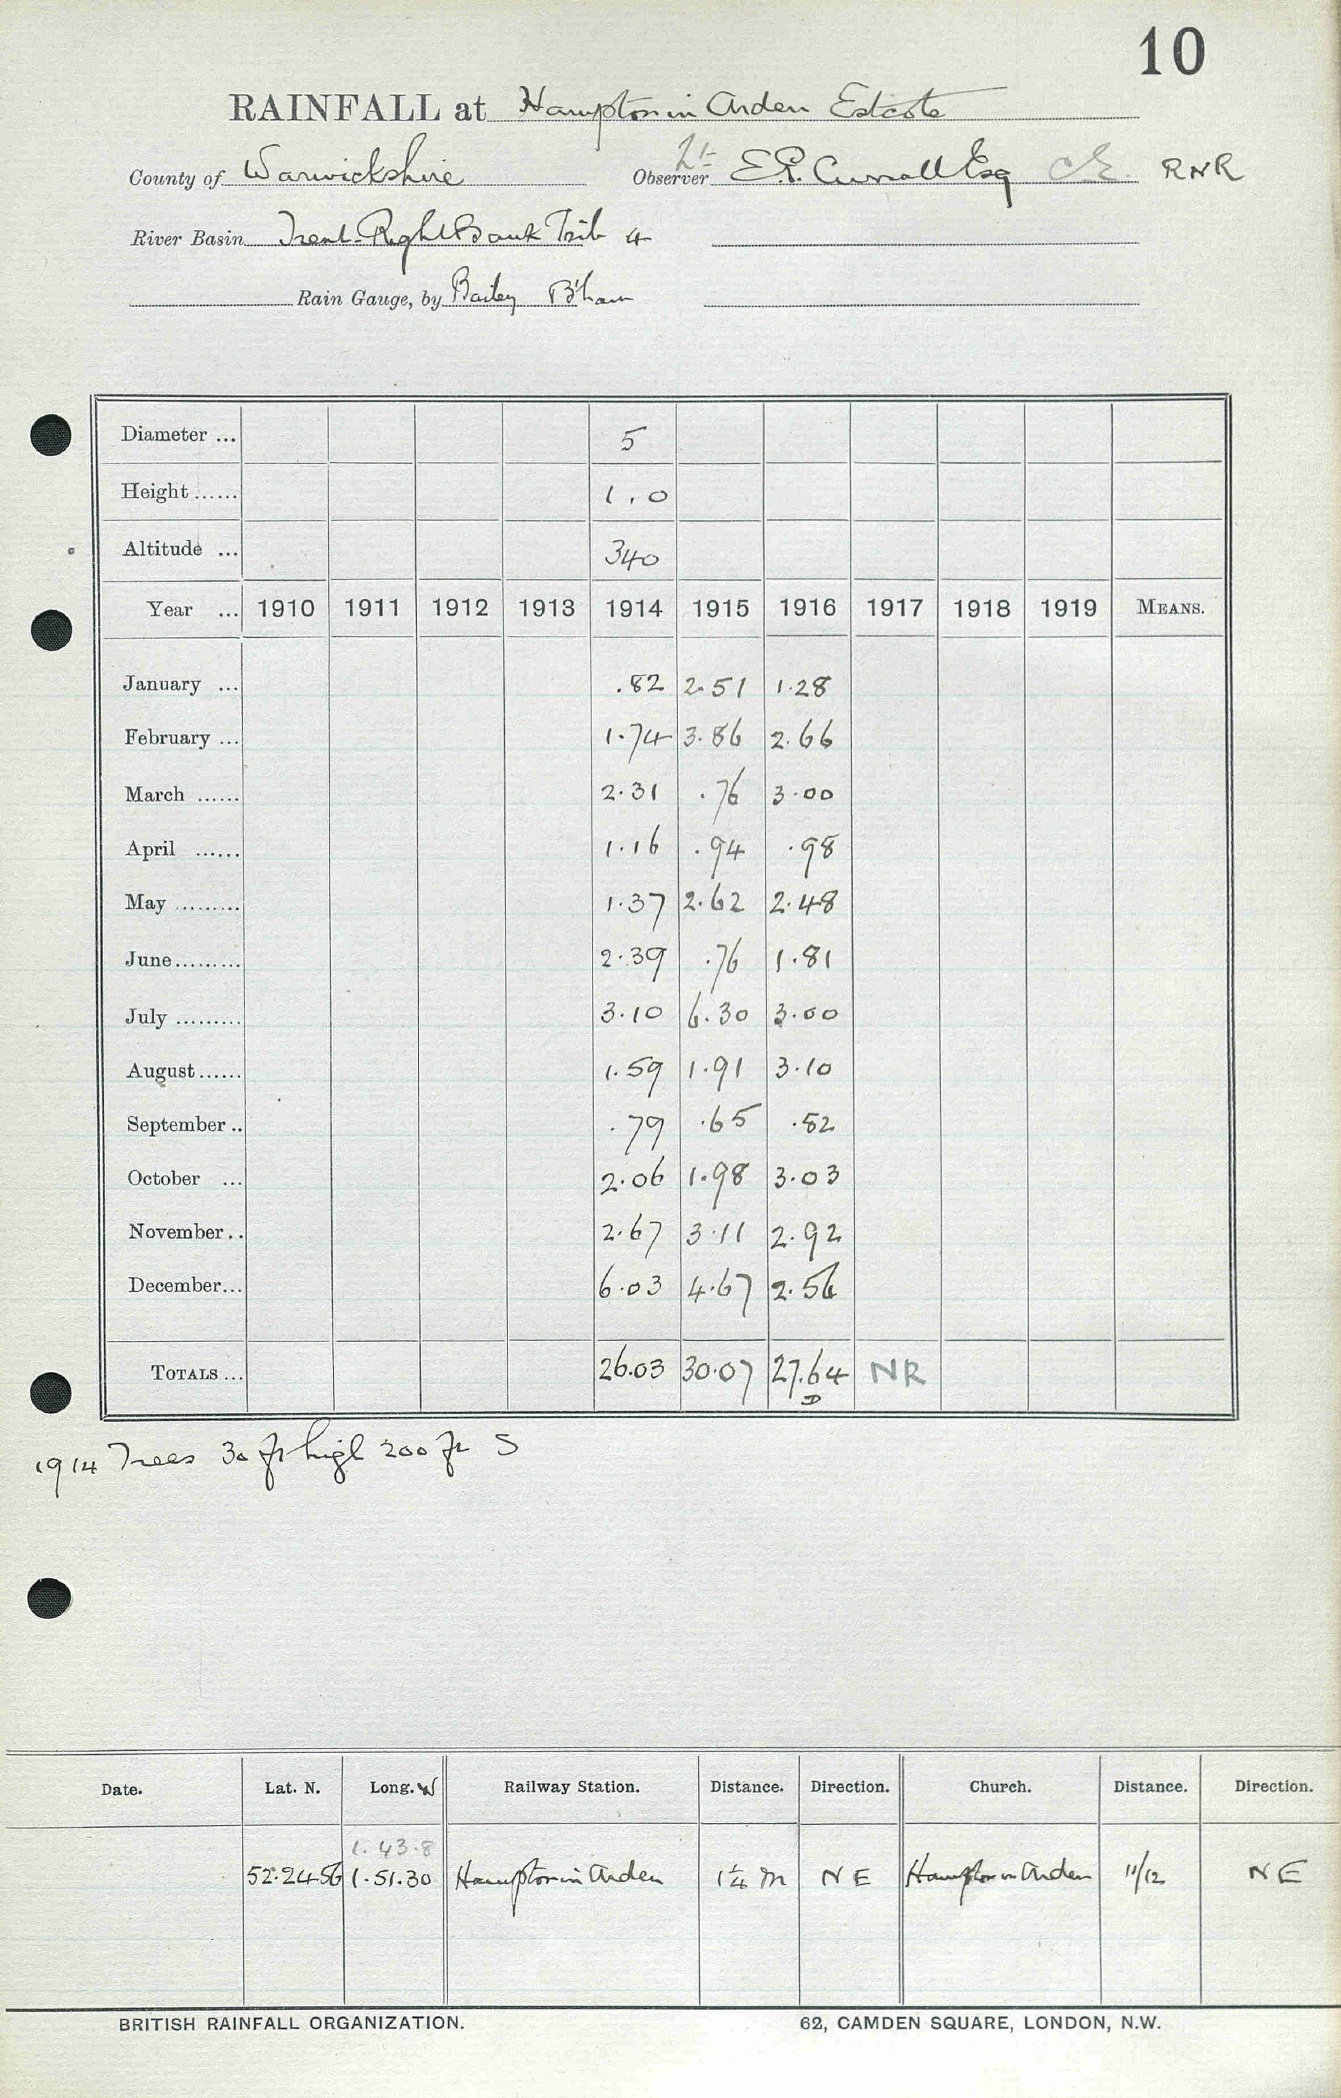 10
RAINFALL at Hampton in Arden Estcote
County of Warwickshire Observer Lt E.P. Currall Esq RNR
River Basin Trent-Right Bank Trib 4
Rain Gauge, by Bailey B'ham
Diameter ... 5
Height ...... 1.0
Altitude ... 340
Year ... 1910 1911 1912 1913 1914 1915 1916 1917 1918 1919 MEANS.
January ... .82 2.51 1.28
February ... 1.74 3.86 2.66
March ...... 2.31 .76 3.00
April ...... 1.16 .94 .98
May ......... 1.37 2.62 2.48
June ......... 2.39 .76 1.81
July ......... 3.10 6.30 3.00
August ...... 1.59 1.91 3.10
September .. .79 .65 .82
October ... 2.06 1.98 3.03
November .. 2.67 3.11 2.92
December ... 6.03 4.67 2.56
TOTALS ... 26.03 30.07 27.64 NR
D
1914 Trees 30 ft high 200 ft S
Date. Lat. N. Long. W Railway Station. Distance. Direction. Church. Distance. Direction.
1.43.8
52.24.56 1.51.30 Hampton in Arden 1¼ m NE Hampton in Arden 11/12 NE
BRITISH RAINFALL ORGANIZATION. 62, CAMDEN SQUARE, LONDON, N.W.